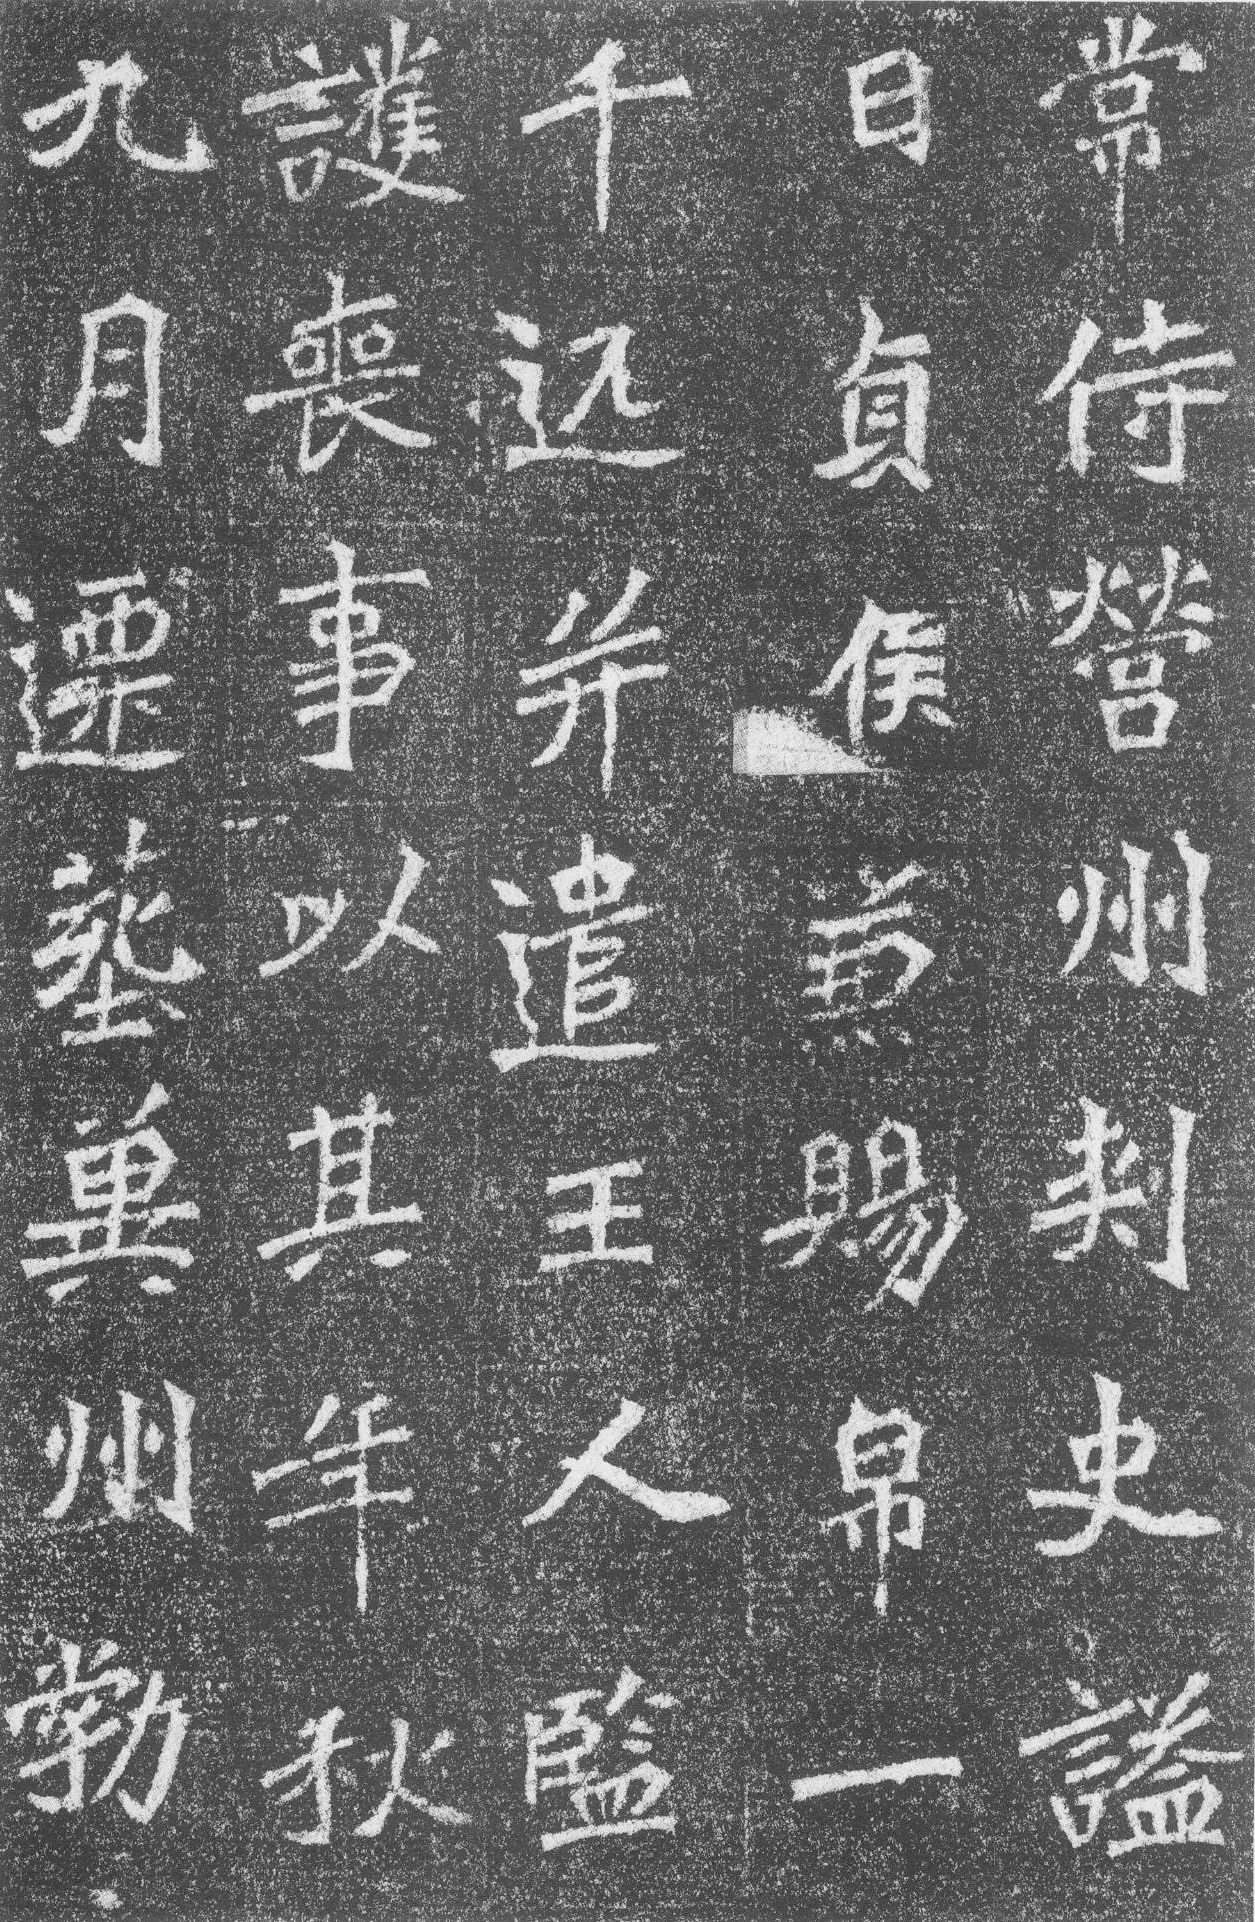 常侍營州刺史謚
曰貞侯兼賜帛一
千匹并遣王人監
護喪事以其年秋
九月遷葬冀州勃